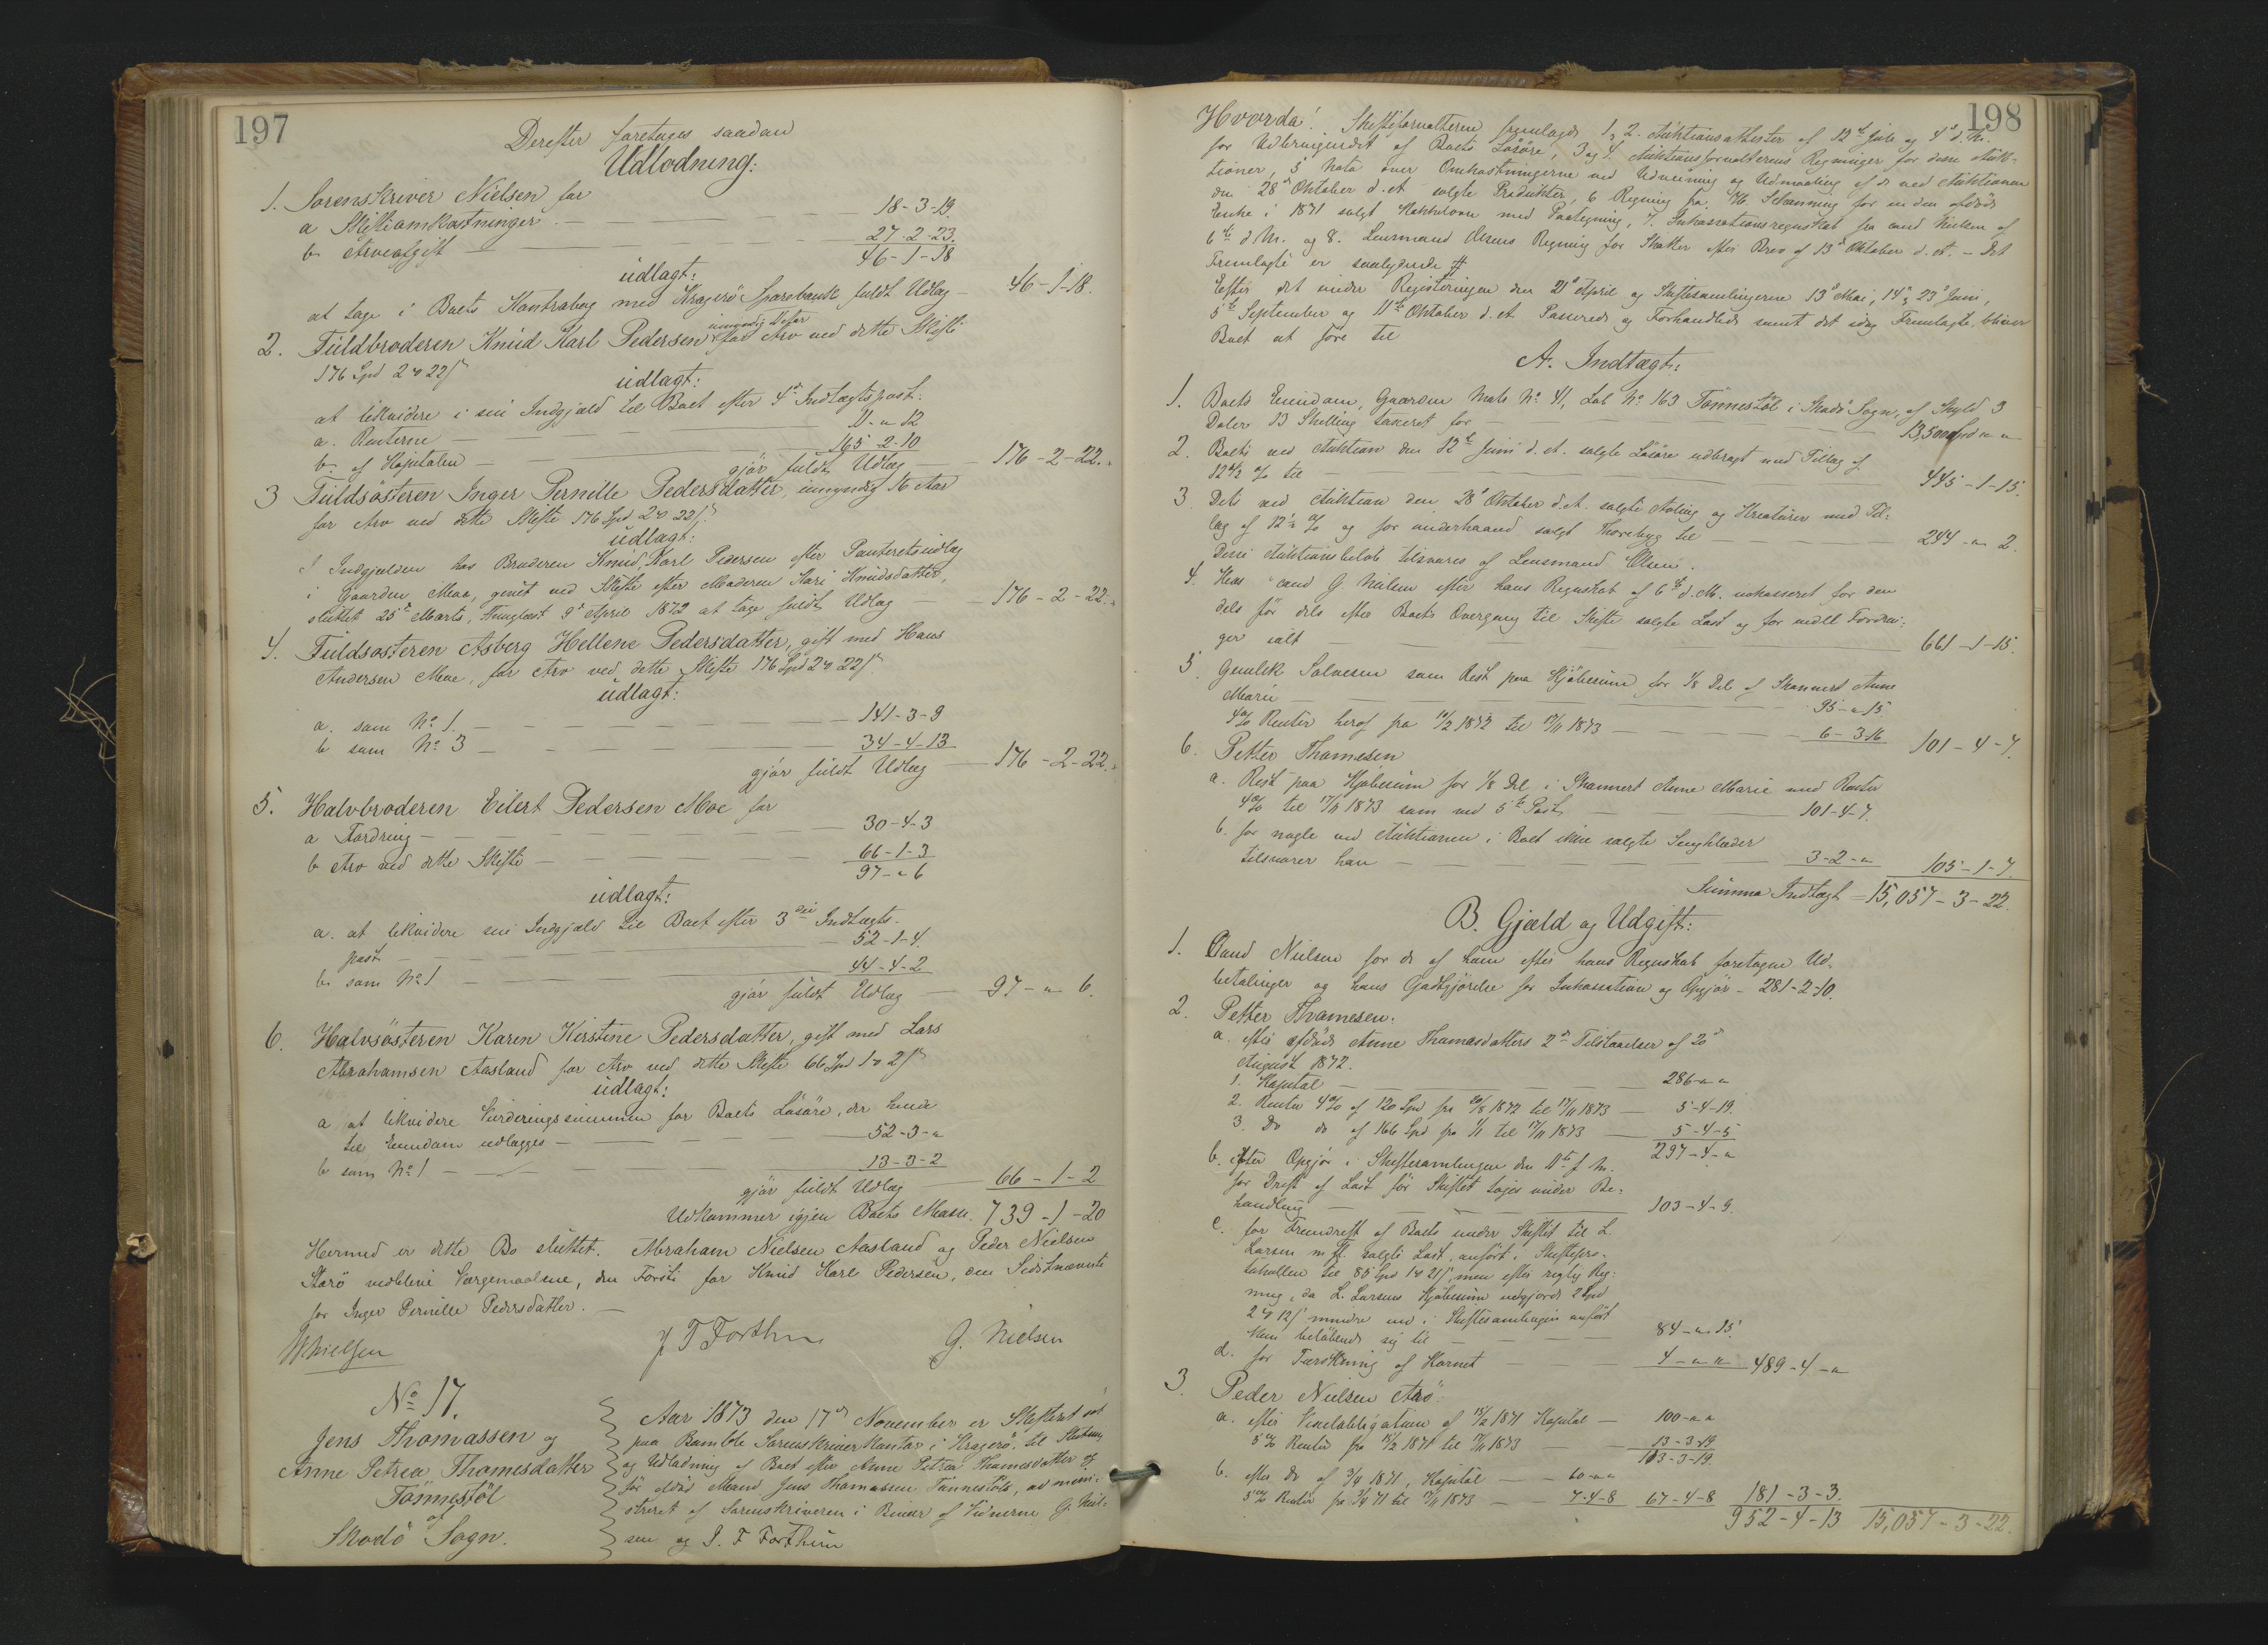 197
Derefter foretages saadan
Udlodning:
1. Sorenskriver Nielsen for
a Skifteomkostninger — 18-3-19.
b. Arveafgift — 27-2-23.
46-1-18
udlagt:
at tage i Boets Kontrabog med Kragerö Sparebank fuldt Udlæg — 46-1-18.
2. Fuldbroderen Knud Karl Pedersen for Arv ved dette Skifte
176 Spd 2 # 22 ß
udlagt:
at likvidere i sin Indgjæld til Boet efter 4de Indtægtspost.
a. Renterne — 11-"-12
b. af Kapitalen — 165-2-10
gjör fuldt Udlæg — 176-2-22.
3 Fuldsösteren Inger Pernille Pedersdatter, umyndig 16 Aar
for Arv ved dette Skifte 176 Spd 2 # 22 ß.
udlagt:
I Indgjælden hos Broderen Knud Karl Pedersen efter Panteretsudlæg
i Gaarden Moe, gemt ved Skifte efter Moderen Kari Knudsdatter,
sluttet 25de Marts, thinglæst 9de April 1872 at tage fuldt Udlæg — 176-2-22.
4. Fuldsösteren Asberg Hellene Pedersdatter, gift med Hans
Andersen Moe, for Arv ved dette Skifte 176 Spd 2 # 22 ß
udlagt:
a. som No 1. — 141-3-9
b som No 3 — 34-4-13
gjör fuldt Udlæg — 176-2-22.
5. Halvbroderen Eilert Pedersen Moe for
a Fordring — 30-4-3
b Arv ved dette Skifte — 66-1-3
97-"-6
udlagt:
a. at likvidere sin Indgjæld til Boet efter 3die Indtægts-
post — 52-1-4.
b. som No 1 — 44-4-2
gjör fuldt Udlæg — 97-"-6.
6. Halvsösteren Karen Kirstine Pedersdatter, gift med Lars
Abrahamsen Aasland for Arv ved dette Skifte 66 Spd 1 # 2 ß
udlagt:
a at likvidere Vurderingssummen for Boets Lösöre, der hende
til Eiendom udlægges — 52-3-"
b som No 1 — 13-3-2
gjör fuldt Udlæg — 66-1-2
Udkommer igjen Boets Masse. 739-1-20
Hermed er dette Bo sluttet. Abraham Nielsen Aasland og Peder Nielsen
vedblive Værgemaalene, den Förste for Knud Karl Pedersen, den Sidstnævnte
for Inger Pernille Pedersdatter. —
Nielsen J T Forthun G. Nielsen
No 17.
Jens Thomassen og
Anne Petrea Thomesdatter
Tönnestöl
af
Skadö Sogn.
Aar 1873 den 17de November er Skifteret sat
paa Bamble Sorenskriverkontor i Kragerö til Slutning
og Udlodning af Boet efter Anne Petrea Thomesdatter og
för afdöd Mand Jens Thomassen Tönnestöl, admini-
streret af Sorenskriveren i Bivær af Vidnerne G. Niel-
sen og J. T Forthun
198
Hvorda: Skifteforvalteren fremlagde 1, 2. Auktionsattester af 12te Juli og 4de d. M.
for Udbringendet af Boets Lösöre, 3 og 4. Auktionsforvalterens Regninger for disse Auk-
tioner, 5 Nota over Omkostningerne ved Udvisning og Udmaaling af de ved Auktionen
den 28de Oktober d. A. solgte Produkter, 6 Regning fra Schanning for en den afdöde
Enke i 1871 solgt Kakkelovn med Paategning, 7. Inkassationsregnskab fra cand Nielsen af
6te d. M. og 8. Lensmand Olsens Regning for Skatter efter Brev af 13de Oktober d. A. — Det
Fremlagte er saalydende #
Efter det under Registreringen den 21de April og Skiftesamlingerne 13de Mai, 14de, 23de Juni,
5te September og 11te Oktober d. A. Passerede og Forhandlede samt det idag Fremlagte, bliver
Boet at före til
A. Indtægt:
1. Boets Eiendom, Gaarden Matr No. 41, Löb No. 163 Tönnestöl i Skadö Sogn, af Skyld 3
Daler 13 Skilling taxeret for — 13,500 Spd " "
2. Boets ved Auktion den 12te Juni d. A. solgte Lösöre udbragt med Tillæg af
12 1/2 % til — 445-1-15.
3. Dets ved Auktion den 28de Oktober d. A. solgte Avling og Kreaturer med Til-
læg af 12 1/2 % og for underhaand solgt Havrebyg til — 244-"-2.
Disse Auktionsbelöb tilsvares af Lensmand Olsen.
4. Hos cand G Nielsen efter hans Regnskab af 6te d. M. inkasseret for den
dels för dels efter Boets Overgang til Skifte solgte Last og for indtl Fordrin-
ger ialt — 661-1-15.
5. Gunlek Salvesen som Rest paa Kjöbesum for 1/8 Del af Skonnert Anne
Marie — 95-"-15.
4% Renter heraf fra 14/2 1872 til 17/11 1873 — 6-3-16 101-4-7.
6. Petter Thomesen
a. Rest paa Kjöbesum for 1/8 Del i Skonnert Anne Marie med Renter
4% til 17/11 1873 som ved 5te Post — 101-4-7.
b. for nogle ved Auktionen i Boet ikke solgte Sengklæder
tilsvarer han — 3-2-" 105-1-7.
Summa Indtægt = 15,057-3-22.
B. Gjæld og Udgift:
1. Cand Nielsen for de af ham efter hans Regnskab foretagne Ud-
betalinger og hans Godtgjörelse for Inkassation og Opgjör — 281-2-10.
2. Petter Thomesen.
a. efter afdöde Anne Thomasdatters 2de Tilstaaelser af 20de
August 1872.
1. Kapital — 286-"-"
2. Renter 4% af 120 Spd fra 20/8 1872 til 17/11 1873 — 5-4-19.
3. Do do af 166 Spd fra 1/1 til 17/11 1873 — 5-4-5
297-4-"
b. efter Opgjör i Skiftesamlingen den 11te f. M.
for Drift af Last för Skiftet toges under Be-
handling — 103-4-9.
c. for Fremdrift af Boets under Skiftet til L.
Larsen m. Fl. solgte Last, anfört i Skiftepro-
tokollen til 85 Spd 1 # 21 ß, men efter rigtig Reg-
ning, da L. Larsens Kjöbesum udgjorde 2 Spd
2 # 12 ß mindre end i Skiftesamlingen anfört
kun belöbende sig til — 84-"-15.
d. for Tærskning af Kornet — 4-"-" 489-4-"
3. Peder Nielsen Arö.
a. efter Vexelobligation af 15/2 1871 Kapital — 100-"-"
5% Renter fra 15/2 1871 til 17/11 1873 — 13-3-19
113-3-19.
b. efter do af 3/4 1871, Kapital — 60-"-"
5% Renter fra 3/4 71 til 17/11 1873 — 7-4-8 67-4-8 181-3-3.
952-4-13 15,057-3-22.